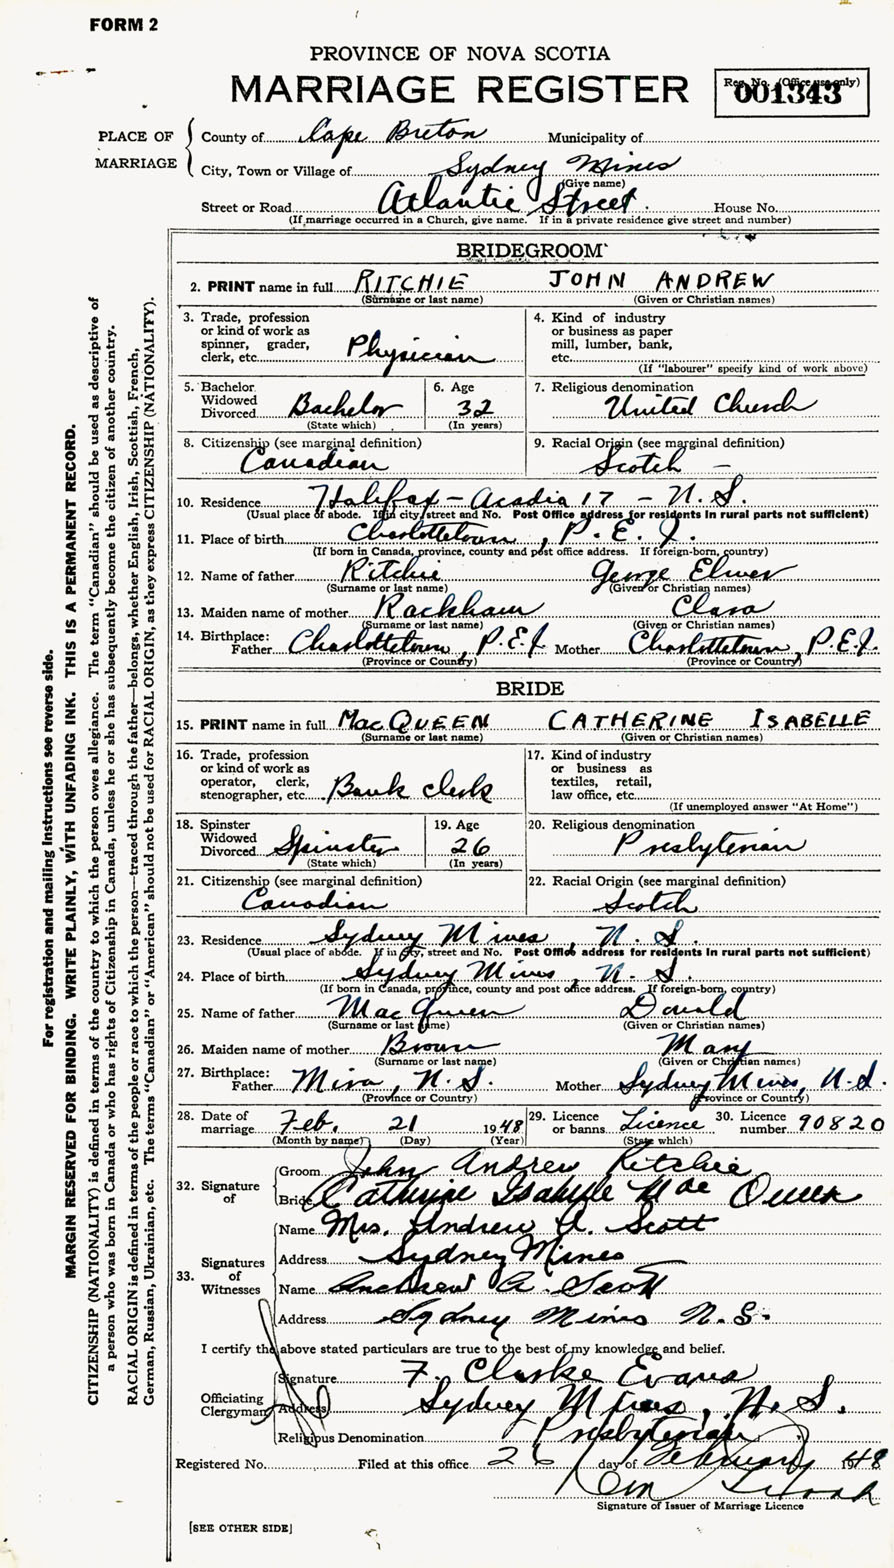 FORM 2
PROVINCE OF NOVA SCOTIA
MARRIAGE REGISTER
Reg. No. (Office use only)
001343
PLACE OF MARRIAGE
County of Cape Breton Municipality of
City, Town or Village of Sydney Mines
(Give name)
Street or Road Atlantic Street. House No.
(If marriage occurred in a Church, give name. If in a private residence give street and number)
BRIDEGROOM
2. PRINT name in full RITCHIE JOHN ANDREW
(Surname or last name) (Given or Christian names)
3. Trade, profession or kind of work as spinner, grader, clerk, etc. Physician
4. Kind of industry or business as paper mill, lumber, bank, etc.
(If "labourer" specify kind of work above)
5. Bachelor Widowed Divorced Bachelor
(State which)
6. Age 32
(In years)
7. Religious denomination
United Church
8. Citizenship (see marginal definition)
Canadian
9. Racial Origin (see marginal definition)
Scotch –
10. Residence Halifax – Acadia 17 – N. S.
(Usual place of abode. If in city, street and No. Post Office address for residents in rural parts not sufficient)
11. Place of birth Charlottetown, P. E. I.
(If born in Canada, province, county and post office address. If foreign-born, country)
12. Name of father Ritchie George Elmer
(Surname or last name) (Given or Christian names)
13. Maiden name of mother Rackham Clara
(Surname or last name) (Given or Christian names)
14. Birthplace:
Father Charlottetown, P.E.I. Mother Charlottetown, P.E.I.
(Province or Country) (Province or Country)
BRIDE
15. PRINT name in full MacQUEEN CATHERINE ISABELLE
(Surname or last name) (Given or Christian names)
16. Trade, profession or kind of work as operator, clerk, stenographer, etc. Bank clerk
17. Kind of industry or business as textiles, retail, law office, etc.
(If unemployed answer "At Home")
18. Spinster Widowed Divorced Spinster
(State which)
19. Age 26
(In years)
20. Religious denomination
Presbyterian
21. Citizenship (see marginal definition)
Canadian
22. Racial Origin (see marginal definition)
Scotch
23. Residence Sydney Mines, N. S.
(Usual place of abode. If in city, street and No. Post Office address for residents in rural parts not sufficient)
24. Place of birth Sydney Mines, N. S.
(If born in Canada, province, county and post office address. If foreign-born, country)
25. Name of father MacQueen Donald
(Surname or last name) (Given or Christian names)
26. Maiden name of mother Brown Mary
(Surname or last name) (Given or Christian names)
27. Birthplace:
Father Mira, N.S. Mother Sydney Mines, N.S.
(Province or Country) (Province or Country)
28. Date of marriage Feb. 21 1948
(Month by name) (Day) (Year)
29. Licence or banns Licence
(State which)
30. Licence number 90820
32. Signature of
Groom John Andrew Ritchie
Bride Catherine Isabelle MacQueen
33. Signatures of Witnesses
Name Mrs. Andrew A. Scott
Address Sydney Mines
Name Andrew A. Scott
Address Sydney Mines N. S.
I certify the above stated particulars are true to the best of my knowledge and belief.
Officiating Clergyman
Signature F. Clarke Evans
Address Sydney Mines, N. S.
Religious Denomination Presbyterian
Registered No. Filed at this office 26 day of February 1948
Signature of Issuer of Marriage Licence
[SEE OTHER SIDE]
For registration and mailing instructions see reverse side.
MARGIN RESERVED FOR BINDING. WRITE PLAINLY, WITH UNFADING INK. THIS IS A PERMANENT RECORD.
CITIZENSHIP (NATIONALITY) is defined in terms of the country to which the person owes allegiance. The term "Canadian" should be used as descriptive of
a person who was born in Canada or who has rights of Citizenship in Canada, unless he or she has subsequently become the citizen of another country.
RACIAL ORIGIN is defined in terms of the people or race to which the person—traced through the father—belongs, whether English, Irish, Scottish, French,
German, Russian, Ukrainian, etc. The terms "Canadian" or "American" should not be used for RACIAL ORIGIN, as they express CITIZENSHIP (NATIONALITY).